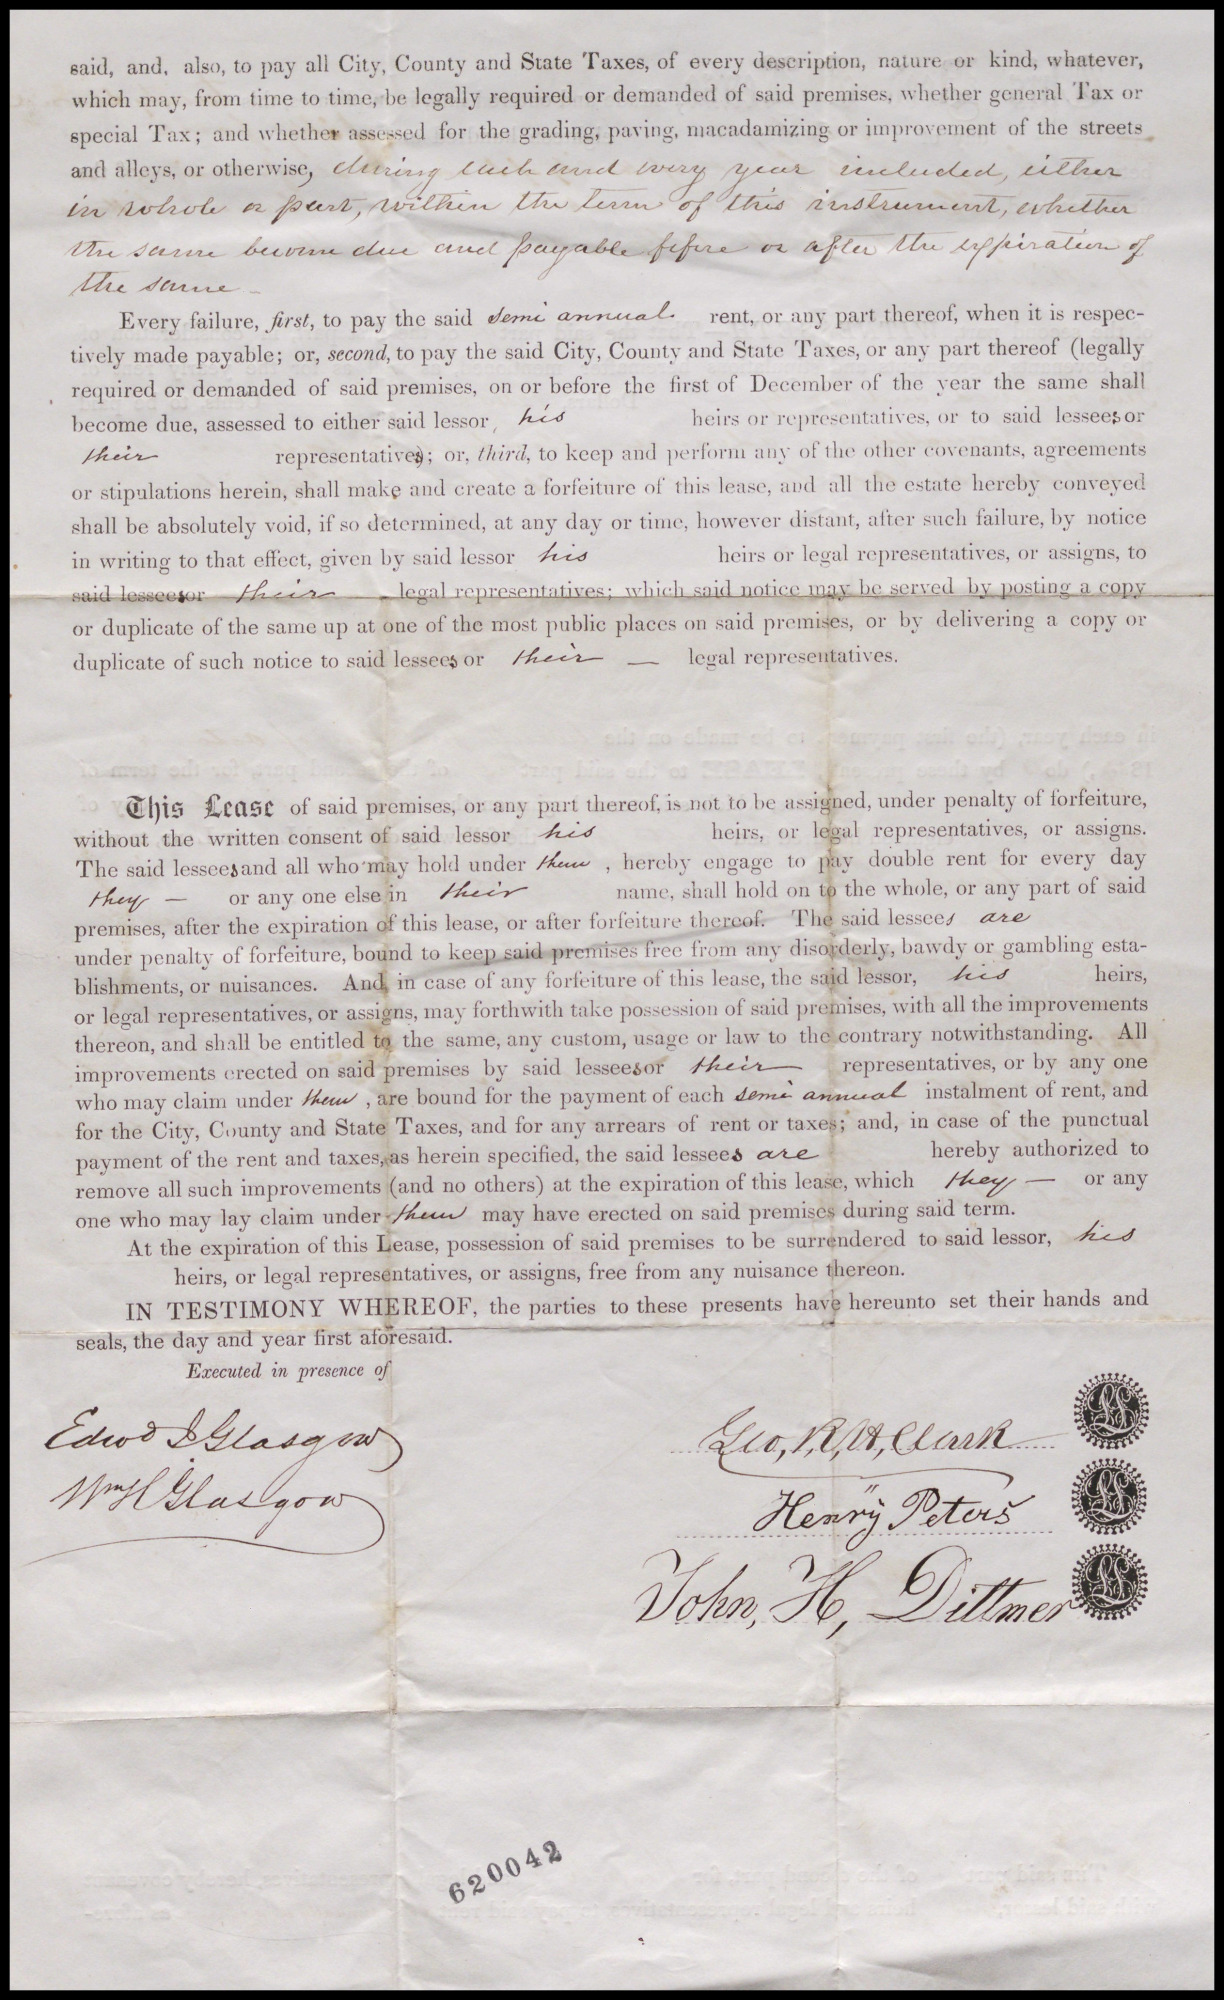 said, and, also, to pay all City, County and State Taxes, of every description, nature or kind, whatever,
which may, from time to time, be legally required or demanded of said premises, whether general Tax or
special Tax; and whether assessed for the grading, paving, macadamizing or improvement of the streets
and alleys, or otherwise, during each and every year included, either
in whole or part, within the term of this instrument, whether
the same become due and payable before or after the expiration of
the same —
Every failure, first, to pay the said semi annual rent, or any part thereof, when it is respec-
tively made payable; or, second, to pay the said City, County and State Taxes, or any part thereof (legally
required or demanded of said premises, on or before the first of December of the year the same shall
become due, assessed to either said lessor, his heirs or representatives, or to said lessees or
their representatives); or, third, to keep and perform any of the other covenants, agreements
or stipulations herein, shall make and create a forfeiture of this lease, and all the estate hereby conveyed
shall be absolutely void, if so determined, at any day or time, however distant, after such failure, by notice
in writing to that effect, given by said lessor his heirs or legal representatives, or assigns, to
said lessees or their — legal representatives; which said notice may be served by posting a copy
or duplicate of the same up at one of the most public places on said premises, or by delivering a copy or
duplicate of such notice to said lessees or their — legal representatives.
This Lease of said premises, or any part thereof, is not to be assigned, under penalty of forfeiture,
without the written consent of said lessor his heirs, or legal representatives, or assigns.
The said lessees and all who may hold under them, hereby engage to pay double rent for every day
they — or any one else in their name, shall hold on to the whole, or any part of said
premises, after the expiration of this lease, or after forfeiture thereof. The said lessees are
under penalty of forfeiture, bound to keep said premises free from any disorderly, bawdy or gambling esta-
blishments, or nuisances. And, in case of any forfeiture of this lease, the said lessor, his heirs,
or legal representatives, or assigns, may forthwith take possession of said premises, with all the improvements
thereon, and shall be entitled to the same, any custom, usage or law to the contrary notwithstanding. All
improvements erected on said premises by said lessees or their representatives, or by any one
who may claim under them, are bound for the payment of each semi annual instalment of rent, and
for the City, County and State Taxes, and for any arrears of rent or taxes; and, in case of the punctual
payment of the rent and taxes, as herein specified, the said lessees are hereby authorized to
remove all such improvements (and no others) at the expiration of this lease, which they — or any
one who may lay claim under them may have erected on said premises during said term.
At the expiration of this Lease, possession of said premises to be surrendered to said lessor, his
heirs, or legal representatives, or assigns, free from any nuisance thereon.
IN TESTIMONY WHEREOF, the parties to these presents have hereunto set their hands and
seals, the day and year first aforesaid.
Executed in presence of
Edwd J Glasgow
Wm H Glasgow
Geo, R, H, Clark
Henrÿ Peters
John, H, Dittmer
620042